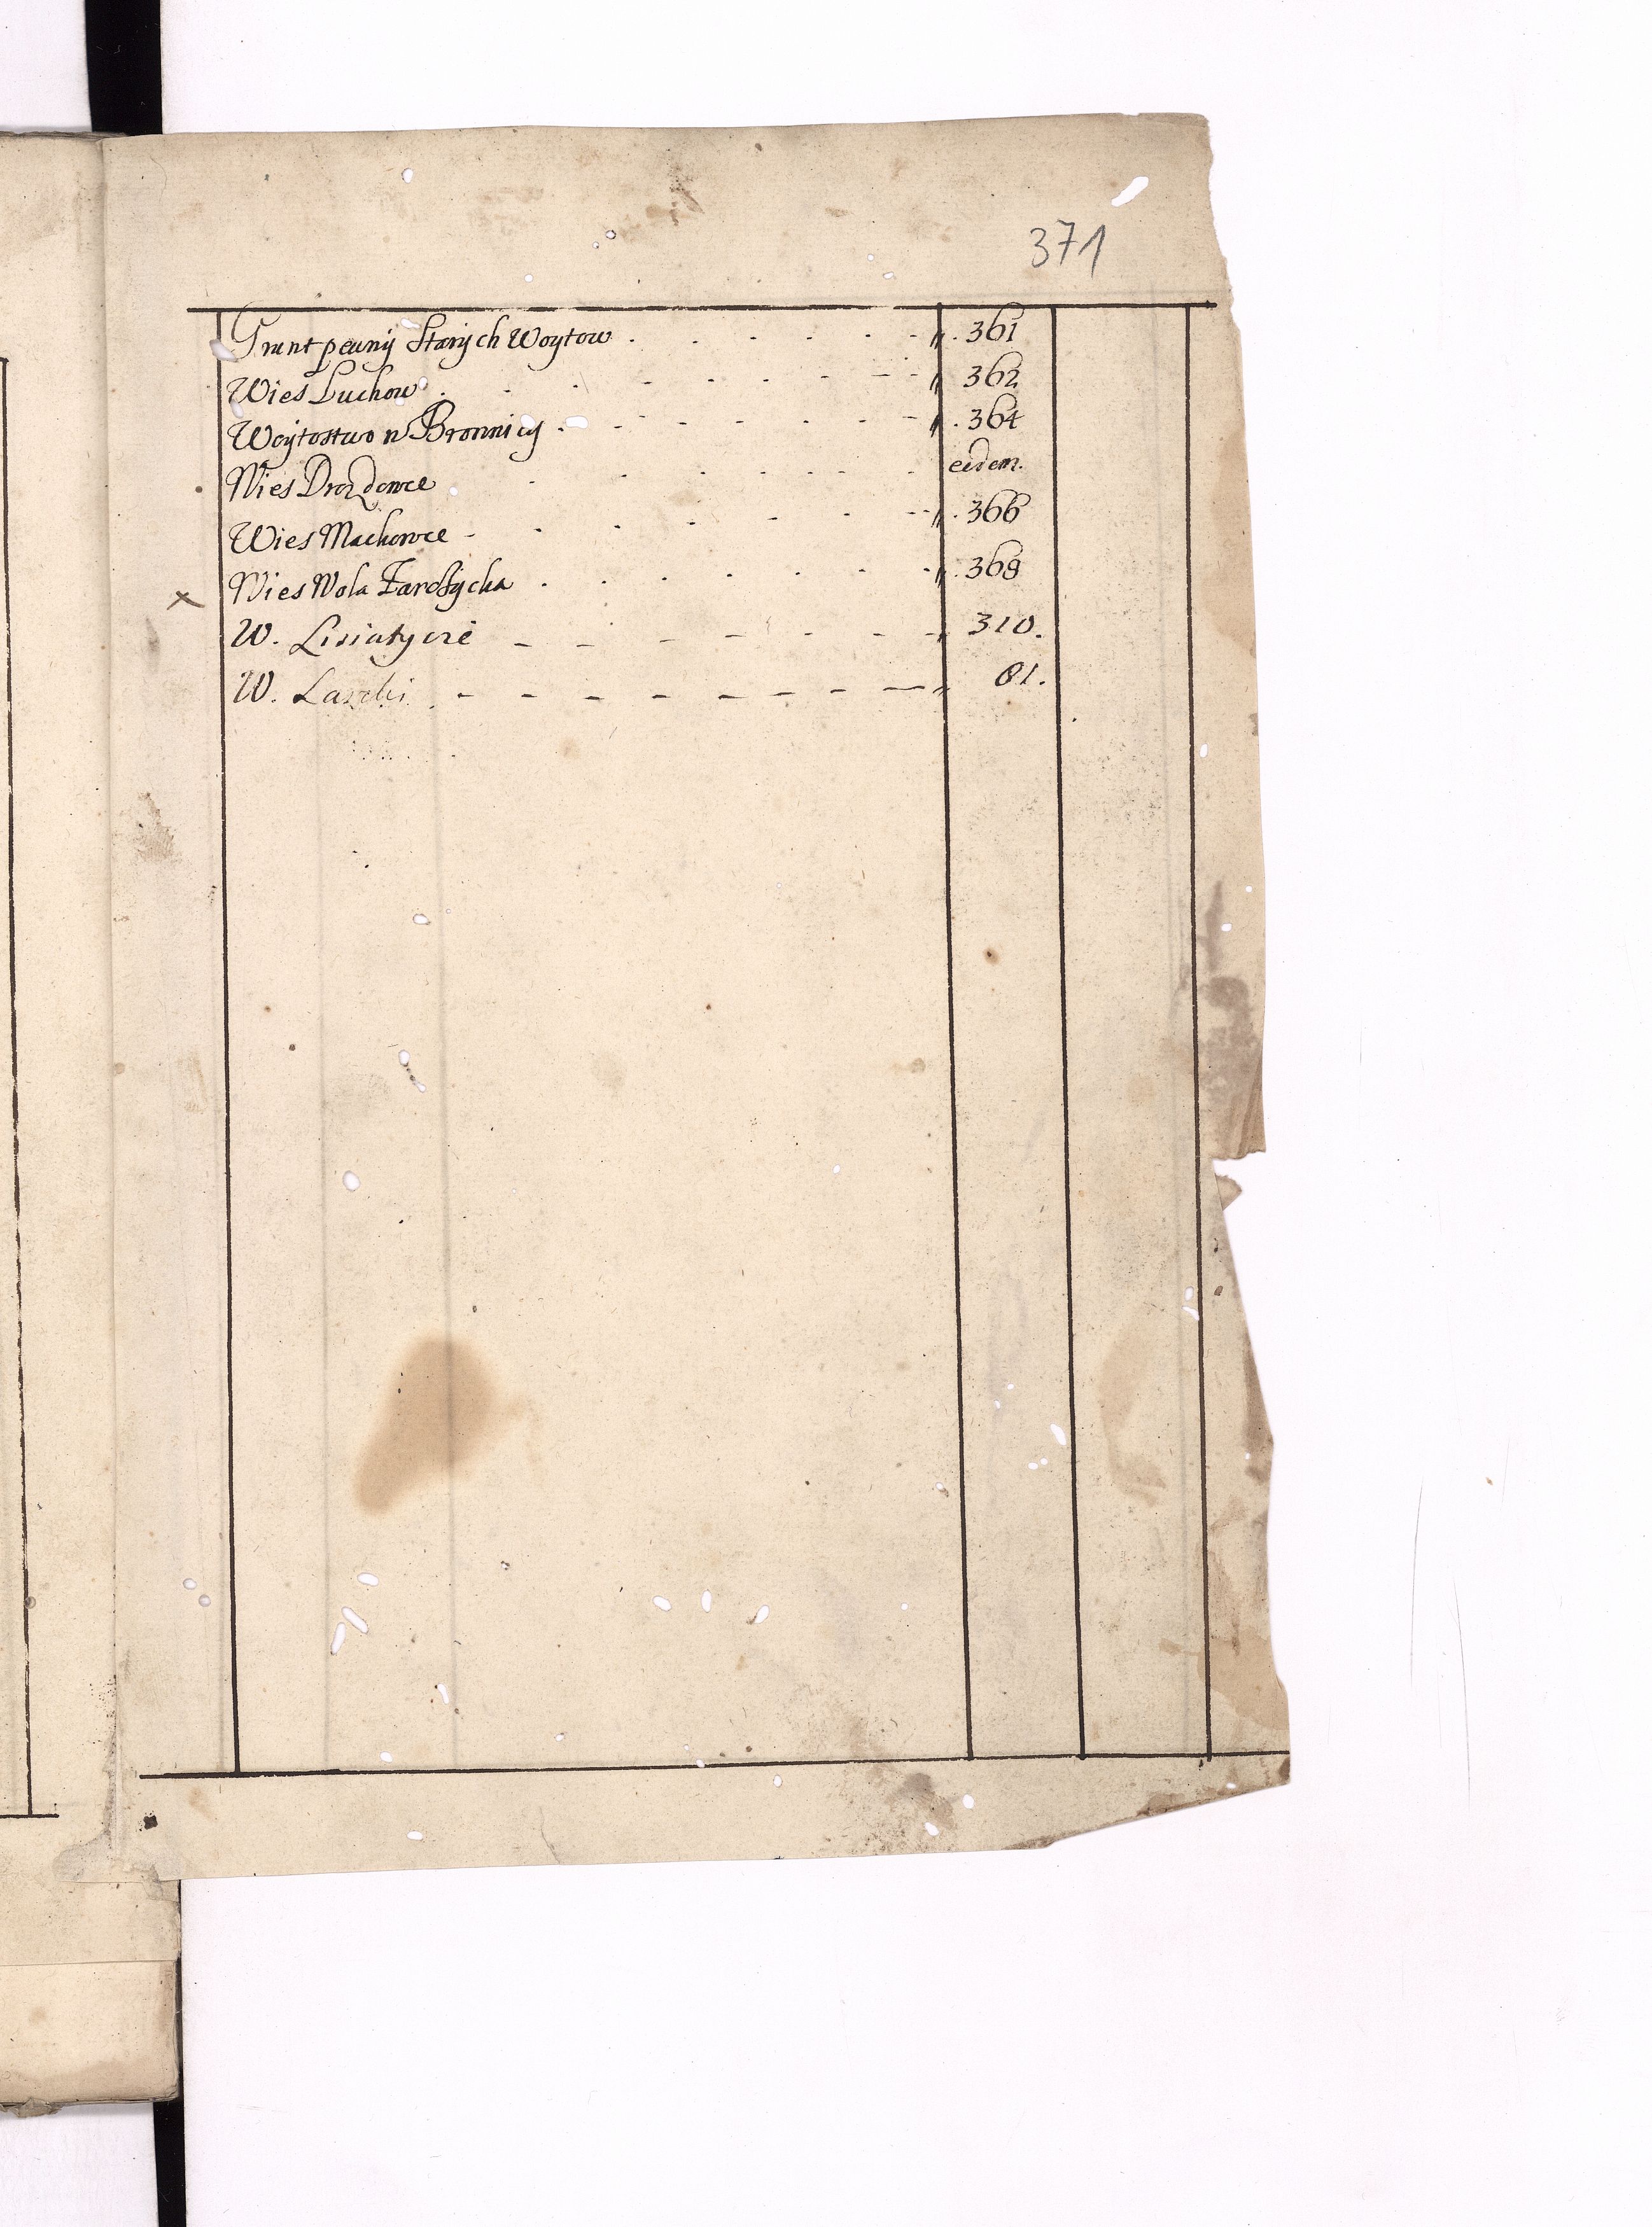 371
Grunt pewny Starych Woytow . . . . . . - „ . 361
Wies Luchow . . . - - - - - - „ 362
Woytostwo w Bronnicy . . - - - - - „ . 364
Wies Drozdowce . . . . . . . . eedem.
Wies Machowce - . . . . . - - „ . 366
x Wies Wola Zarczycka . . . . . . - „ . 368
W. Lisiatycze - - - - - - - - 310.
W. Laszki . - - - - - - - - „ 81.